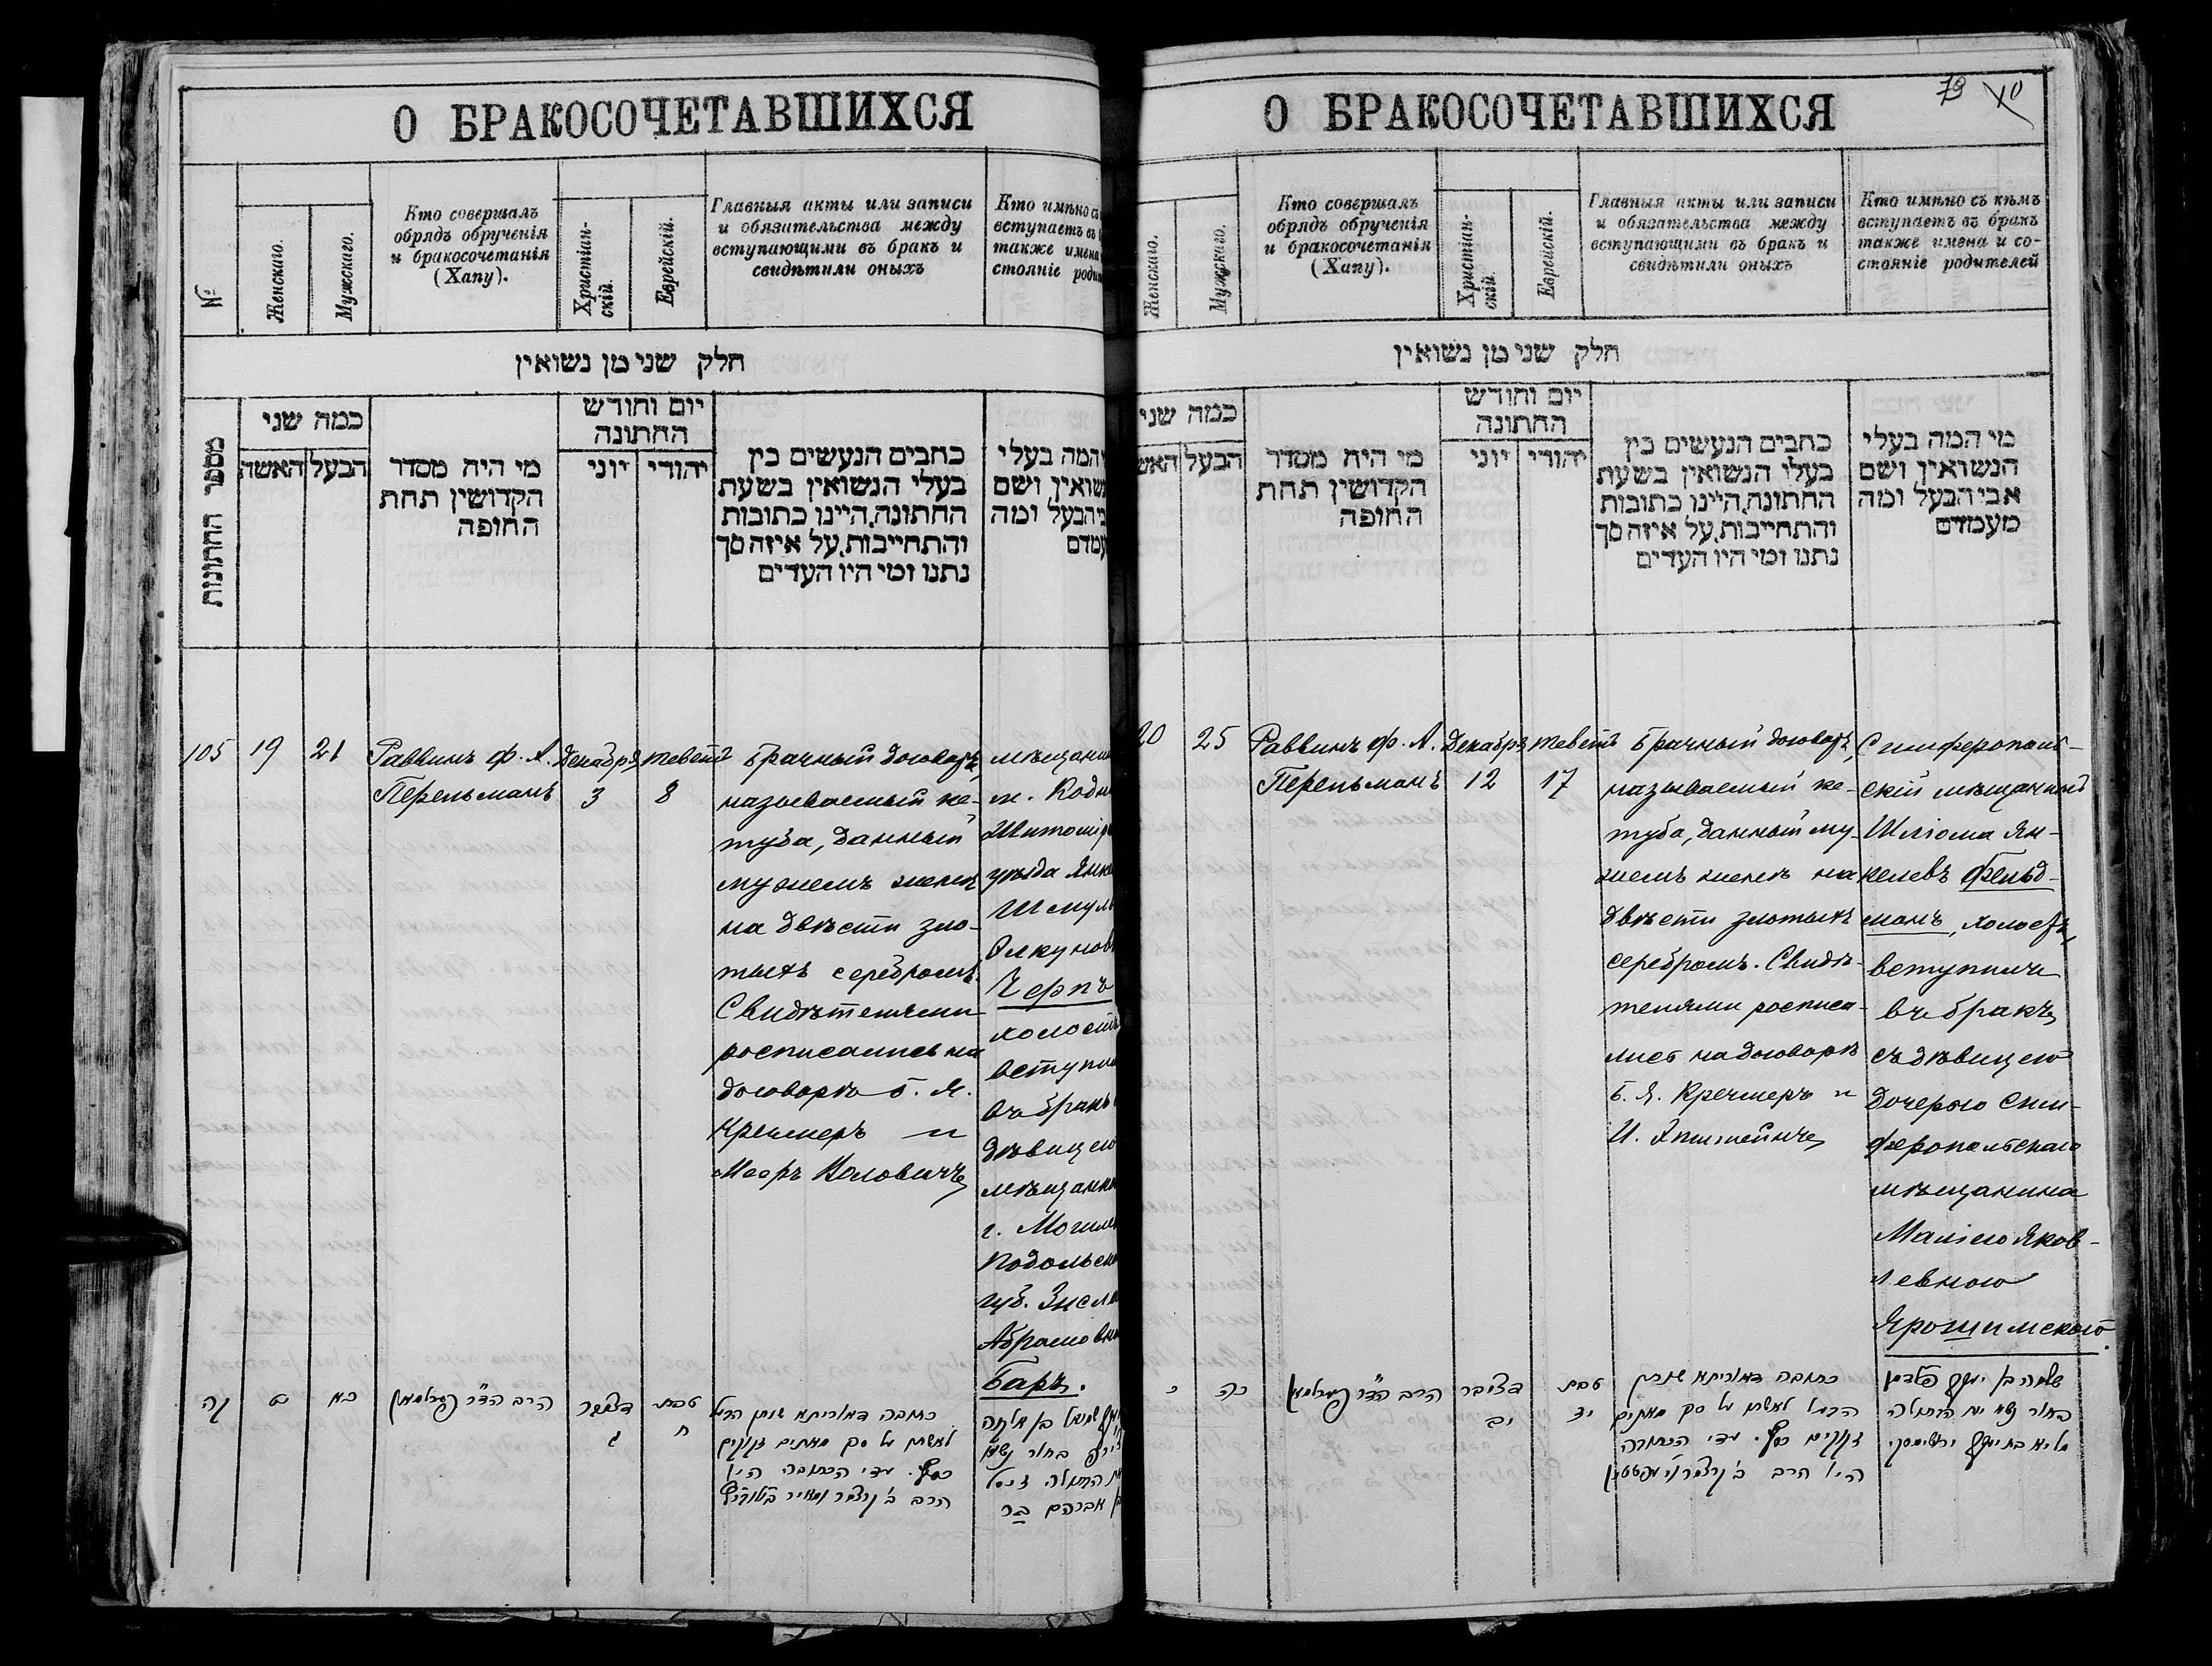 О БРАКОСОЧЕТАВШИХСЯ
№
Женскаго.
Мужскаго.
Кто совершалъ
обрядъ обрученія
и бракосочетанія
(Хапу).
Христіан-
скій.
Еврейскій.
Главныя акты или записи
и обязательства между
вступающими въ бракъ и
свидѣтили оныхъ
Кто имѣно съ
вступаетъ въ
также имена
стояніе роди
חלק שני מן נשואין
מספר החתונות
כמה שני
האשה
הבעל
מי היה מסדר
הקדושין תחת
החופה
יום וחודש
החתונה
יוני
יהודי
כתבים הנעשים בין
בעלי הנשואין בשעת
החתונה,היינו כתובות
והתחייבות,על איזה סך
נתנו ומי היו העדים
המה בעלי
נשואין, ושם
בי הבעל ומה
עמדם
105
19
21
Раввинъ Ф. А.
Перельманъ
Декабря
3
Теветъ
8
Брачный договоръ,
называемый ке-
туба, данный
мужемъ женѣ
на двѣсти зло-
тыхъ серебромъ.
Свидѣтелями
росписались на
договорѣ Б. Я.
Кречмеръ и
Мееръ
мѣщани
м. Кодн
Житомір
уѣзда Янк
Шмуль
Элкунов
Черпъ
холостъ
вступил
въ бракъ
дѣвицею
мѣщанк
г. Могиле
Подольск
губ. Зисл
Абрамовн
Баръ.
קה
יט
כא
הרב הד"ר פערלמאן
דצמבר
ג
טבת
ח
כתובה דאוריתא שנתן הבעל
לאשתו על סך מאתים זקוקים
כסף. עדי הכתובה היו
הרב ב' קרצמר ומאיר
שמואל בן אלקנה
בחור נשא
הבתולה
אברהם בר
О БРАКОСОЧЕТАВШИХСЯ
79
Женскаго.
Мужскаго.
Кто совершалъ
обрядъ обрученія
и бракосочетанія
(Хапу).
Христіан-
скій.
Еврейскій.
Главныя акты или записи
и обязательства между
вступающими въ бракъ и
свидѣтили оныхъ
Кто имѣно съ кѣмъ
вступаетъ въ бракъ
также имена и со-
стояніе родителей
חלק שני מן נשואין
כמה שני
האש
הבעל
מי היה מסדר
הקדושין תחת
החופה
יום וחודש
החתונה
יוני
יהודי
כתבים הנעשים בין
בעלי הנשואין בשעת
החתונה,היינו כתובות
והתחייבות,על איזה סך
נתנו ומי היו העדים
מי המה בעלי
הנשואין ושם
אבי הבעל ומה
מעמדם
20
25
Раввинъ Ф. А.
Перельманъ
Декабря
12
Теветъ
17
Брачный договоръ,
называемый ке-
туба, данный му-
жемъ женѣ на
двѣсти злотыхъ
серебромъ. Свидѣ-
телями росписа-
лись на договорѣ
Б. Я. Кречмеръ и
И. Эпштейнъ
Симферополь-
скій мѣщанинъ
Шліома Ян-
келевъ Фельд-
манъ, холостъ,
вступилъ
въ бракъ
съ дѣвицею
дочерью Сим-
феропольскаго
мѣщанина
Маліею Яков-
левною
Ярошимскою.
כ
כה
הרב הד"ר פערלמאן
דצמבר
יב
טבת
יז
כתובה דאוריתא שנתן
הבעל לאשתו על סך מאתים
זקוקים כסף. עדי הכתובה
היו הרב ב' קרצמר
שלמה בן יעקב פלדמן
בחור נשא את הבתולה
מליא בת יעקב